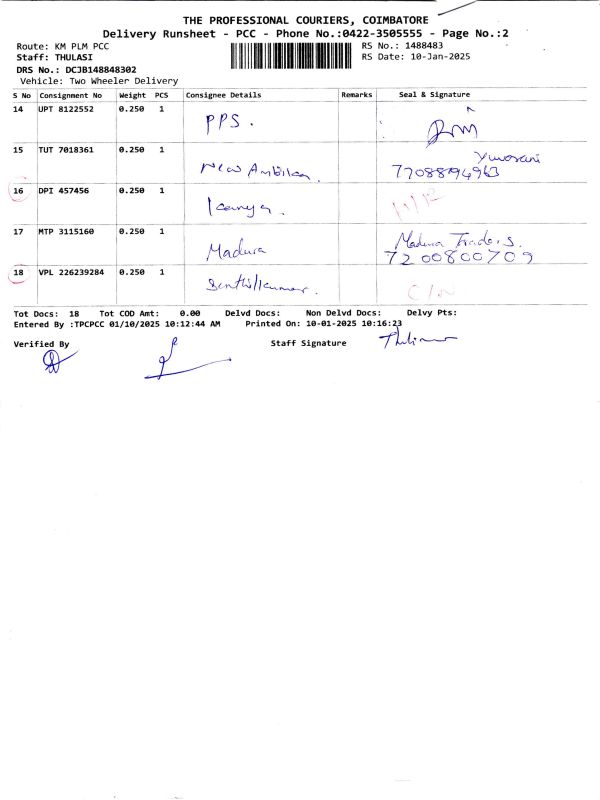 THE PROFESSIONAL COURIERS, COIMBATORE
Delivery Runsheet - PCC - Phone No.:0422-3505555 - Page No.:2
Route: KM PLM PCC RS No.: 1488483
Staff: THULASI RS Date: 10-Jan-2025
DRS No.: DCJB148848302
Vehicle: Two Wheeler Delivery
S No Consignment No Weight PCS Consignee Details Remarks Seal & Signature
14 UPT 8122552 0.250 1 PPS.
15 TUT 7018361 0.250 1 New Ambikas.
16 DPI 457456 0.250 1
17 MTP 3115160 0.250 1 Madura Madura Traders.
7200800709
18 VPL 226239284 0.250 1 Senthilkumar.
Tot Docs: 18 Tot COD Amt: 0.00 Delvd Docs: Non Delvd Docs: Delvy Pts:
Entered By :TPCPCC 01/10/2025 10:12:44 AM Printed On: 10-01-2025 10:16:23
Verified By Staff Signature